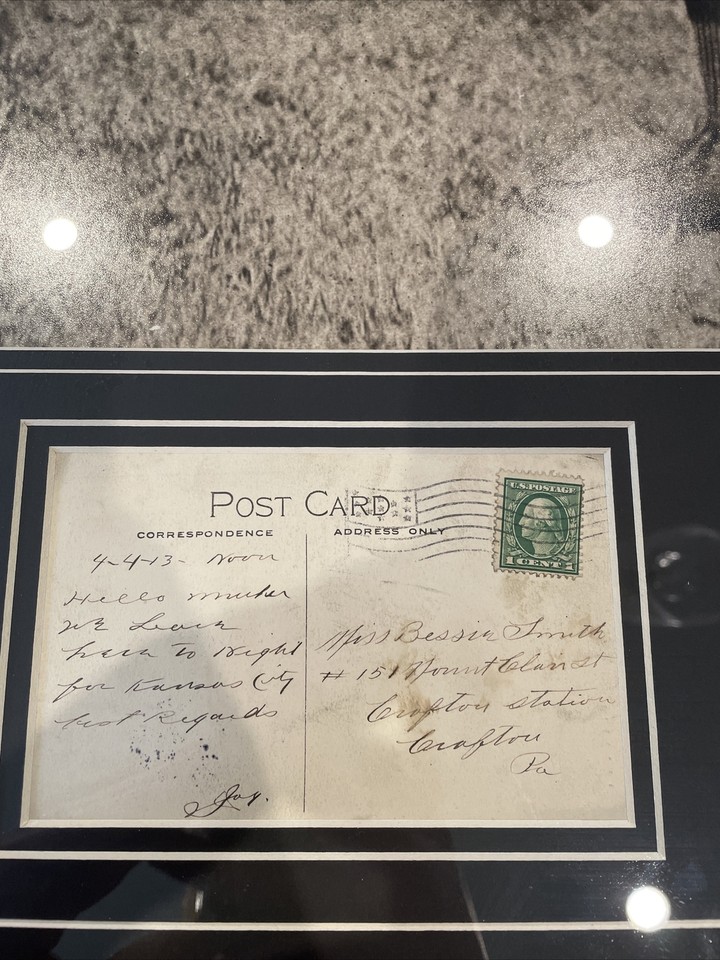 POST CARD
CORRESPONDENCE
ADDRESS ONLY
U.S. POSTAGE
1 CENT 1
4-4-13- Noon
Hello
we Leave
here to Night
for Kansas City
best Regards
Joy.
Miss Bessie Smith
# 151 Mount Clair st
Crafton station
Crafton
Pa